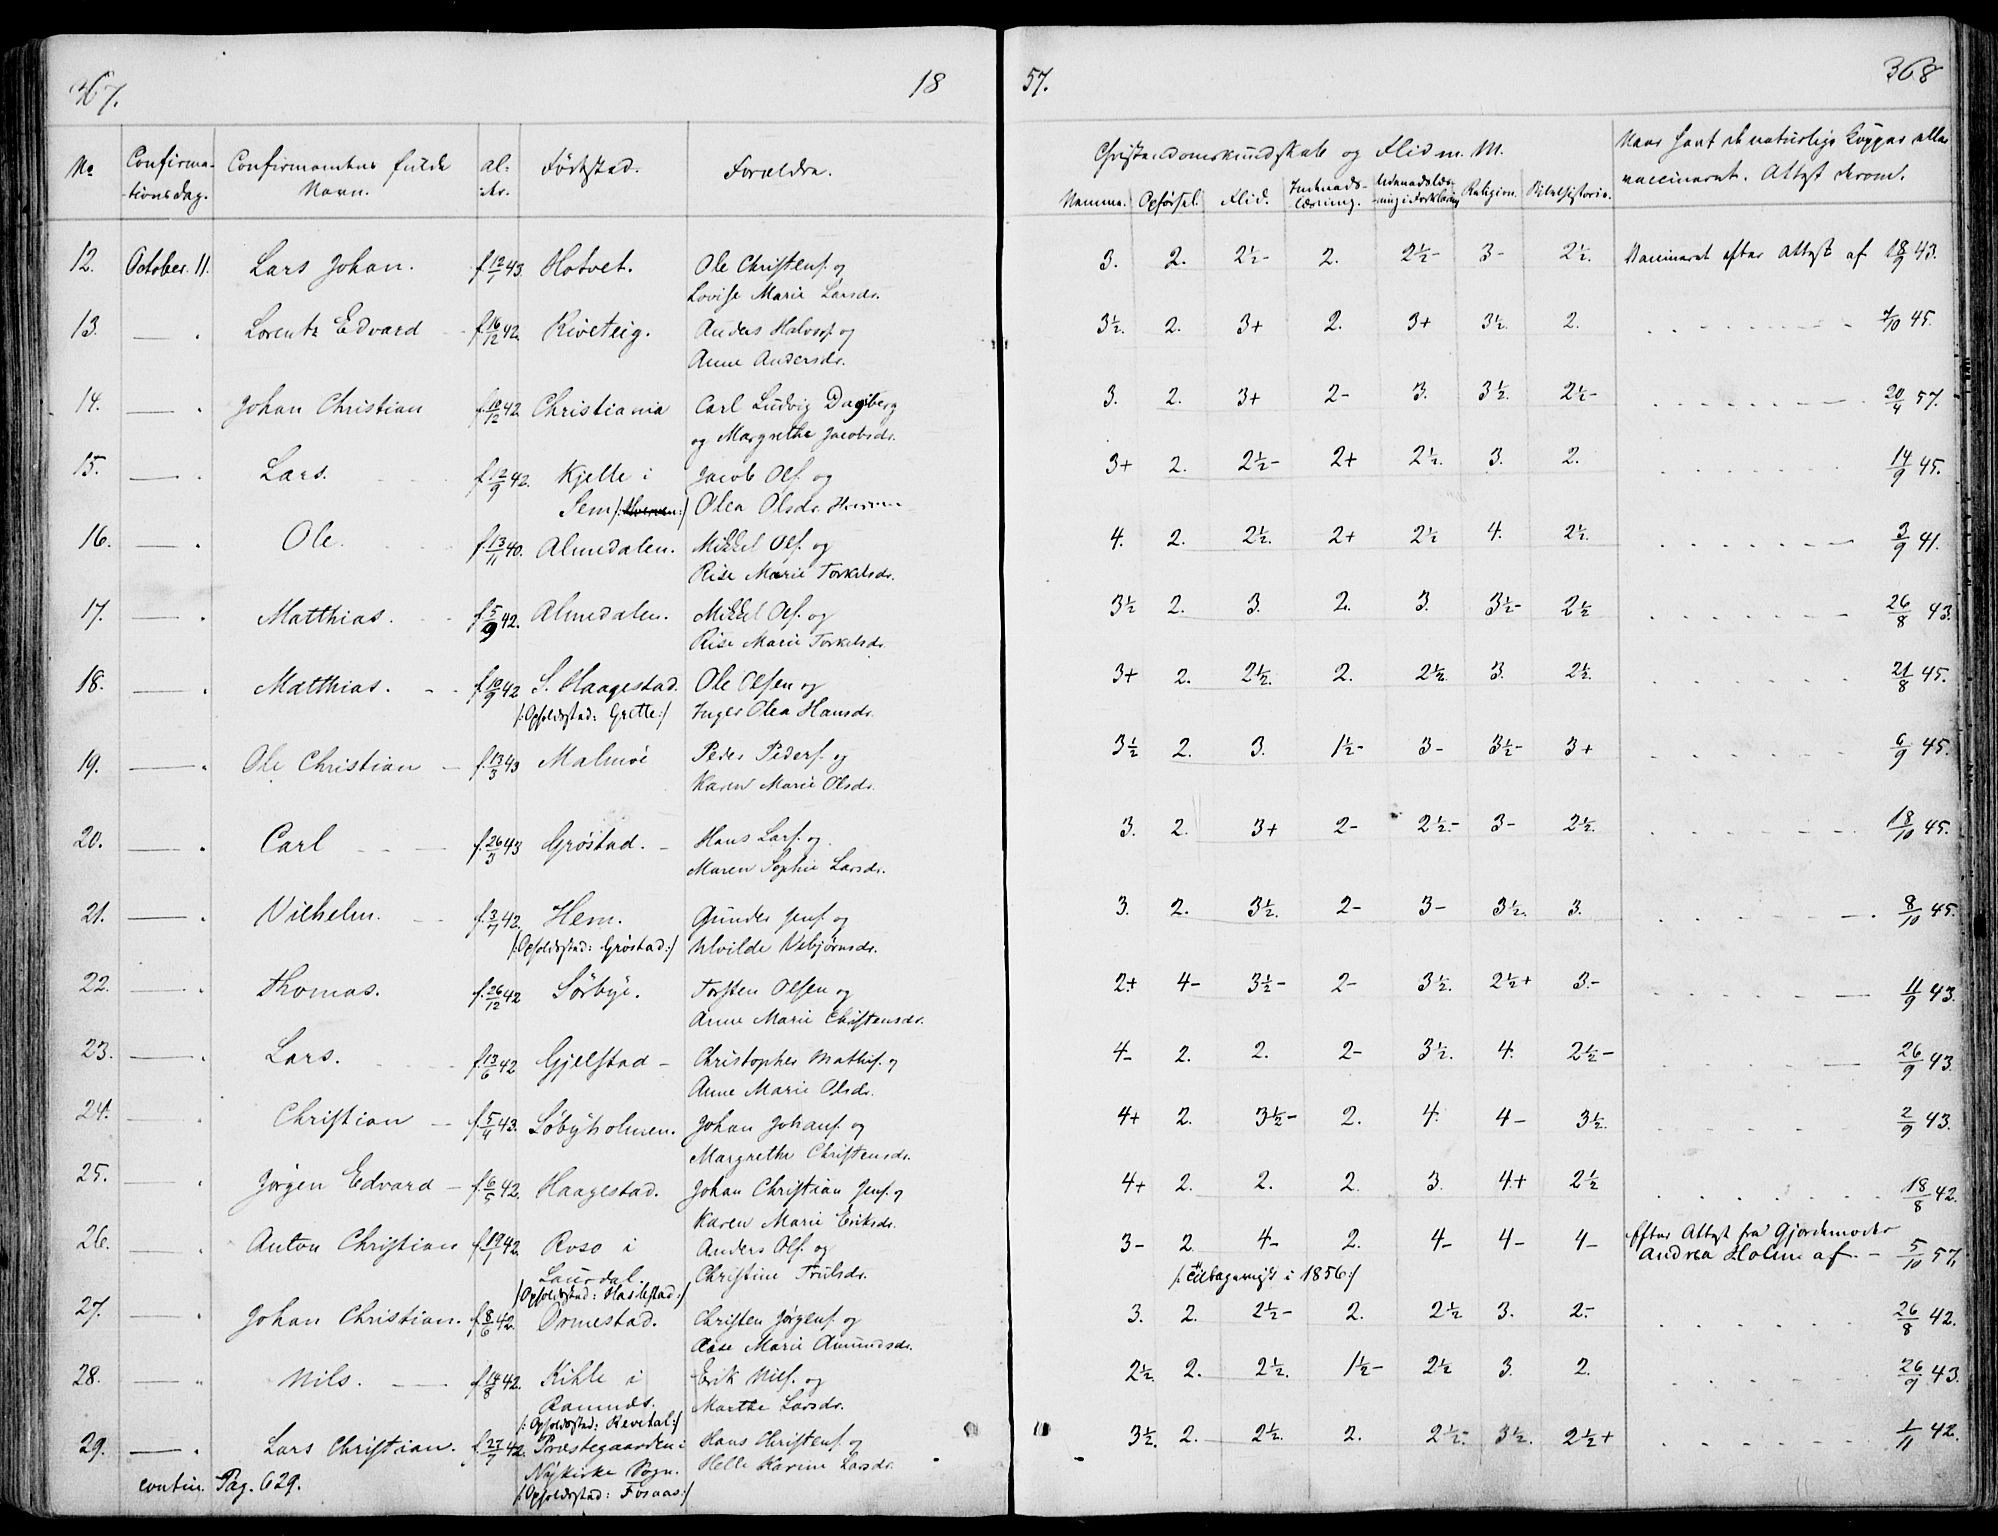 367. 18 57. 368
No Confirma- Confirmantens fulde Al- Fødested. Forældre. Christendomskundskab og Flid m. M. Naar havt de naturlige Kopper eller
-tionsdag. Navn. der. Nemme. Opførsel. Flid. Religion. Bibelhistorie. vaccineret. Attest derom.
12. October 11. Lars Johan. f. 12/1 43. Hotvet. Ole Christens. og 3. 2. 2½- 2. 2½- 3- 2½. Vaccineret efter Attest af 18/9 43.
Lovise Marie Larsdr.
13. — . Lorentz Edvard f. 16/12 42. Riveteig. Anders Halvors. og 3½. 2. 3+ 2. 3+ 3½. 2. 7/10 45.
Anne Andersdr.
14. — . Johan Christian f. 10/12 42 Christiania Carl Ludvig Dagsberg 3. 2. 3+ 2- 3. 3½. 2½- 20/4 57.
og Margrethe Jacobsdr.
15. — . Lars. f. 12/9 42. Kjelle i Jacob Ols. og 3+ 2. 2½- 2+ 2½. 3. 2. 14/9 45.
Sem Olea Olsdr.
16. — . Ole. f. 13/11 40. Almedalen. Mikkel Ols. og 4. 2. 2½. 2+ 2½ 4. 2½. 3/9 41.
Rise Marie Torkelsdr.
17. — . Matthias. f. 5/9 42. Almedalen. Mikkel Ols. og 3½ 2. 3. 2. 3. 3½- 2½ 26/8 43.
Rise Marie Torkelsdr.
18. — . Matthias. f. 10/9 42 S. Haagestad. Ole Olsen og 3+ 2. 2½. 2. 2½ 3. 2½. 21/8 45.
/: Opholdsstad: Grette:/ Inger Olea Hansdr.
19. — . Ole Christian f. 13/3 43 Malmöe Peder Peders. og 3½ 2. 3. 1½- 3- 3½- 3+ 6/9 45.
Karen Marie Olsdr.
20. — . Carl f. 26/3 43 Grøstad. Hans Lars. og 3. 2. 3+ 2- 2½- 3- 2½. 18/10 45.
Maren Sophie Larsdr.
21. — . Vilhelm. f. 3/7 42. Hem. Gunder Jens. og 3. 2. 3½. 2- 3- 3½. 3. 8/10 45.
/: Opholdsstad: Grøstad:/ Ulvilde Vebjørnsdr.
22. — . Thomas. f. 26/12 42 Sørbye. Torsten Olsen og 2+ 4- 3½- 2- 3½. 2½+ 3- 11/9 43.
Anne Marie Christensdr.
23. — . Lars. f. 13/6 42 Gjelstad Christopher Mathis. og 4- 2. 2. 2- 3½. 4. 2½- 26/9 43.
Anne Marie Olsdr.
24. — . Christian f. 5/4 43. Søbyholmen. Johan Johans. og 4+ 2. 3½- 2. 4. 4- 3½. 2/9 43.
Margrethe Christensdr.
25. — . Jørgen Edvard f. 6/5 42. Haagestad. Johan Christian Jens. og 4+ 2. 2. 2. 3. 4+ 2½ 18/8 42.
Karen Marie Eriksdr.
26. — . Anton Christian f. 19/7 42. Roso i Anders Ols. og 3- 2. 4- 2. 4- 4- 4- Efter Attest fra Gjordemoder
Laurdal. Christine Trulsdr. /: tilbagevist i 1856:/ Andrea Holm af 5/10 57.
/: Opholdsstad: Haslestad:/
27. — . Johan Christian. f. 8/6 42. Ormestad. Christen Jørgens. og 3. 2. 2½- 2. 2½ 3. 2- 26/8 42.
Aase Marie Amundsdr.
28. — . Nils. f. 14/8 42. Kihle i Erik Nils. og 2½. 2. 2½. 1½- 2½ 3. 2. 26/9 43.
Ramnæs. Marthe Larsdr.
/: Opholdsstad: Revetal:/
29. — . Lars Christian. f. 27/7 42. Præstegaarden i Hans Christens. og 3½. 2. 2½. 2. 2½- 3½. 2½+ 1/11 42.
Nykirke Sogn. Helle Karine Larsdr.
contin. Pag. 629. /: Opholdsstad: Fosaas:/